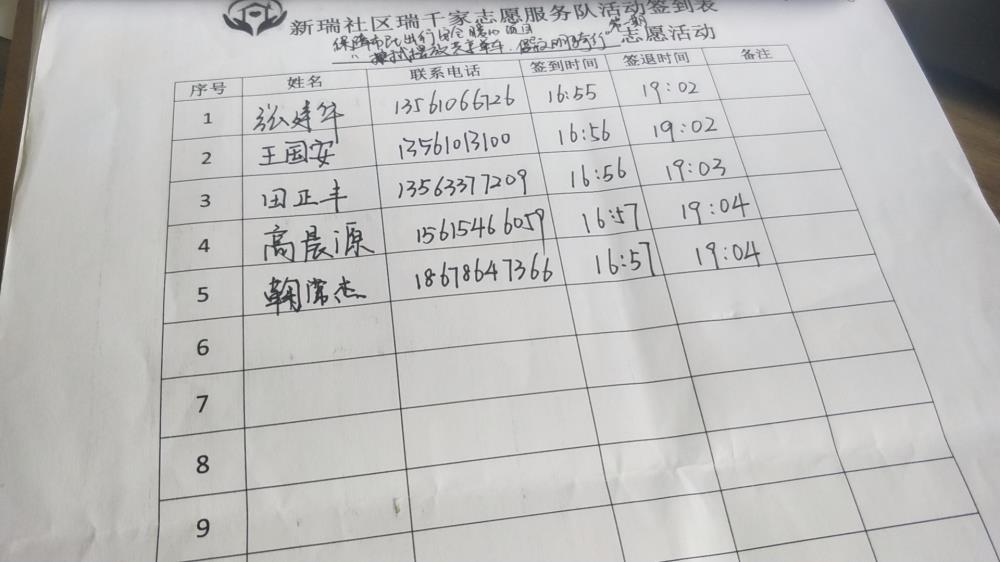 新瑞社区瑞千家志愿服务队活动签到表
保障市民出行安全暖心项目 第一期
"擦拭摆放共享单车，倡文明骑行" 志愿活动
序号 姓名 联系电话 签到时间 签退时间 备注
1 张建华 13561066726 16:55 19:02
2 王国安 13561013100 16:56 19:02
3 田正丰 13563377209 16:56 19:03
4 高晨源 15615466059 16:57 19:04
5 鞠常杰 18678647366 16:57 19:04
6
7
8
9